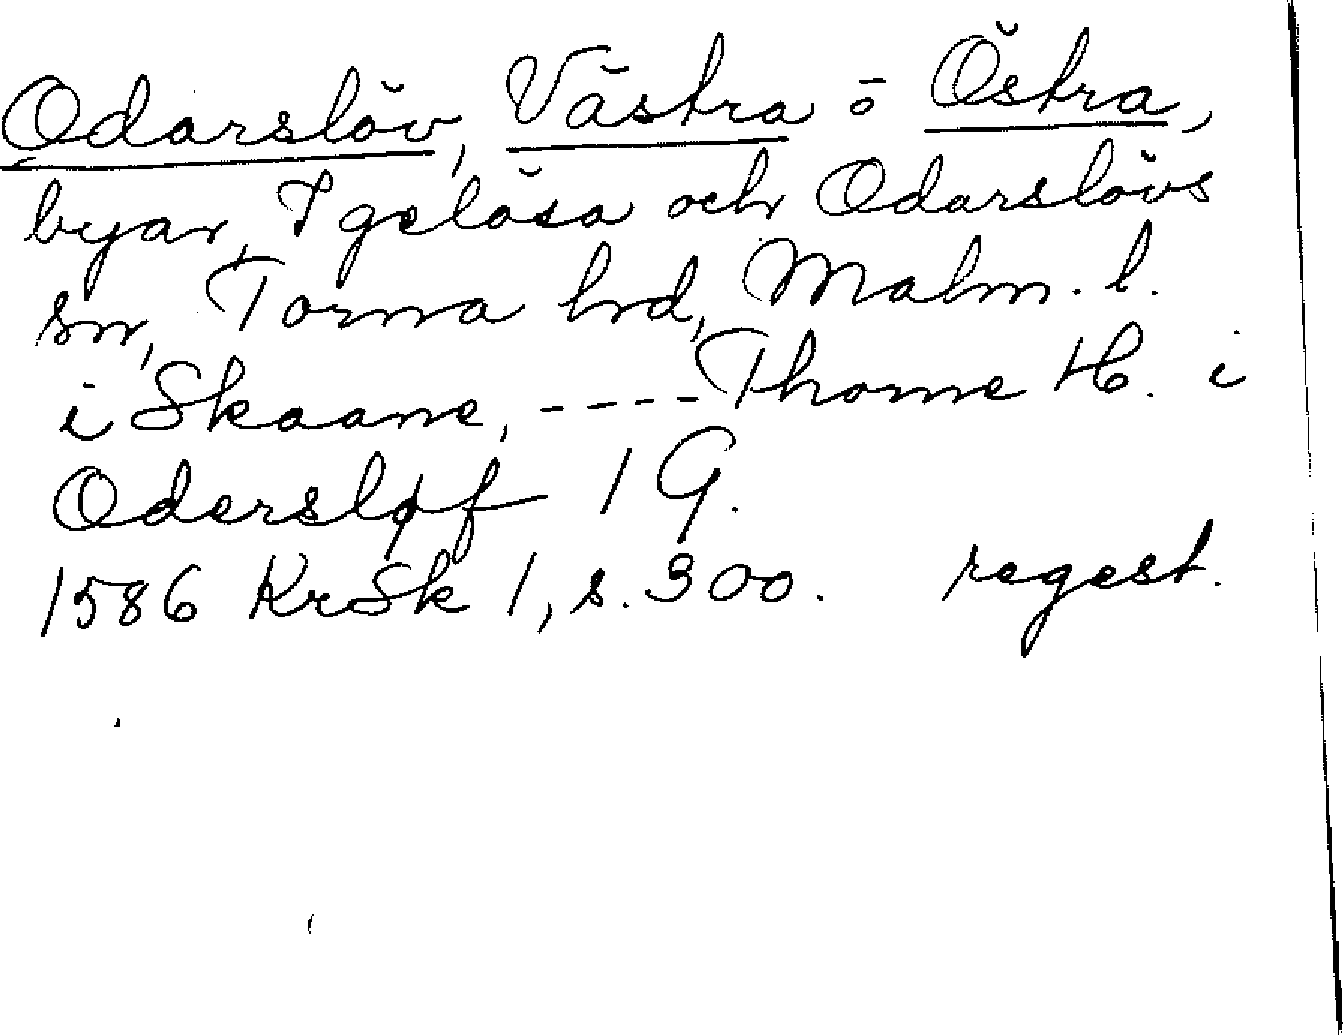 Odarslöv, Västra o Östra,
byar, Igelösa och Odarslövs
sn, Torna hd, Malm. l.
i Skaane, ---- Thome H. i
Odersløf 1 G.
1586 KrSk 1, s. 300. regest.